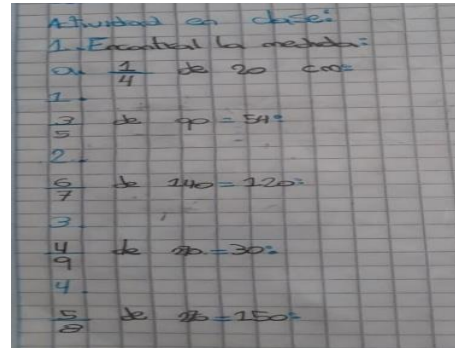 Actividad en clase:
1. Encontral la medida:
a. 1/4 de 20 cm=
1.
3/5 de 90 = 54:
2.
6/7 de 140 = 120:
3.
4/9 de = 30:
4.
5/8 de = 150: